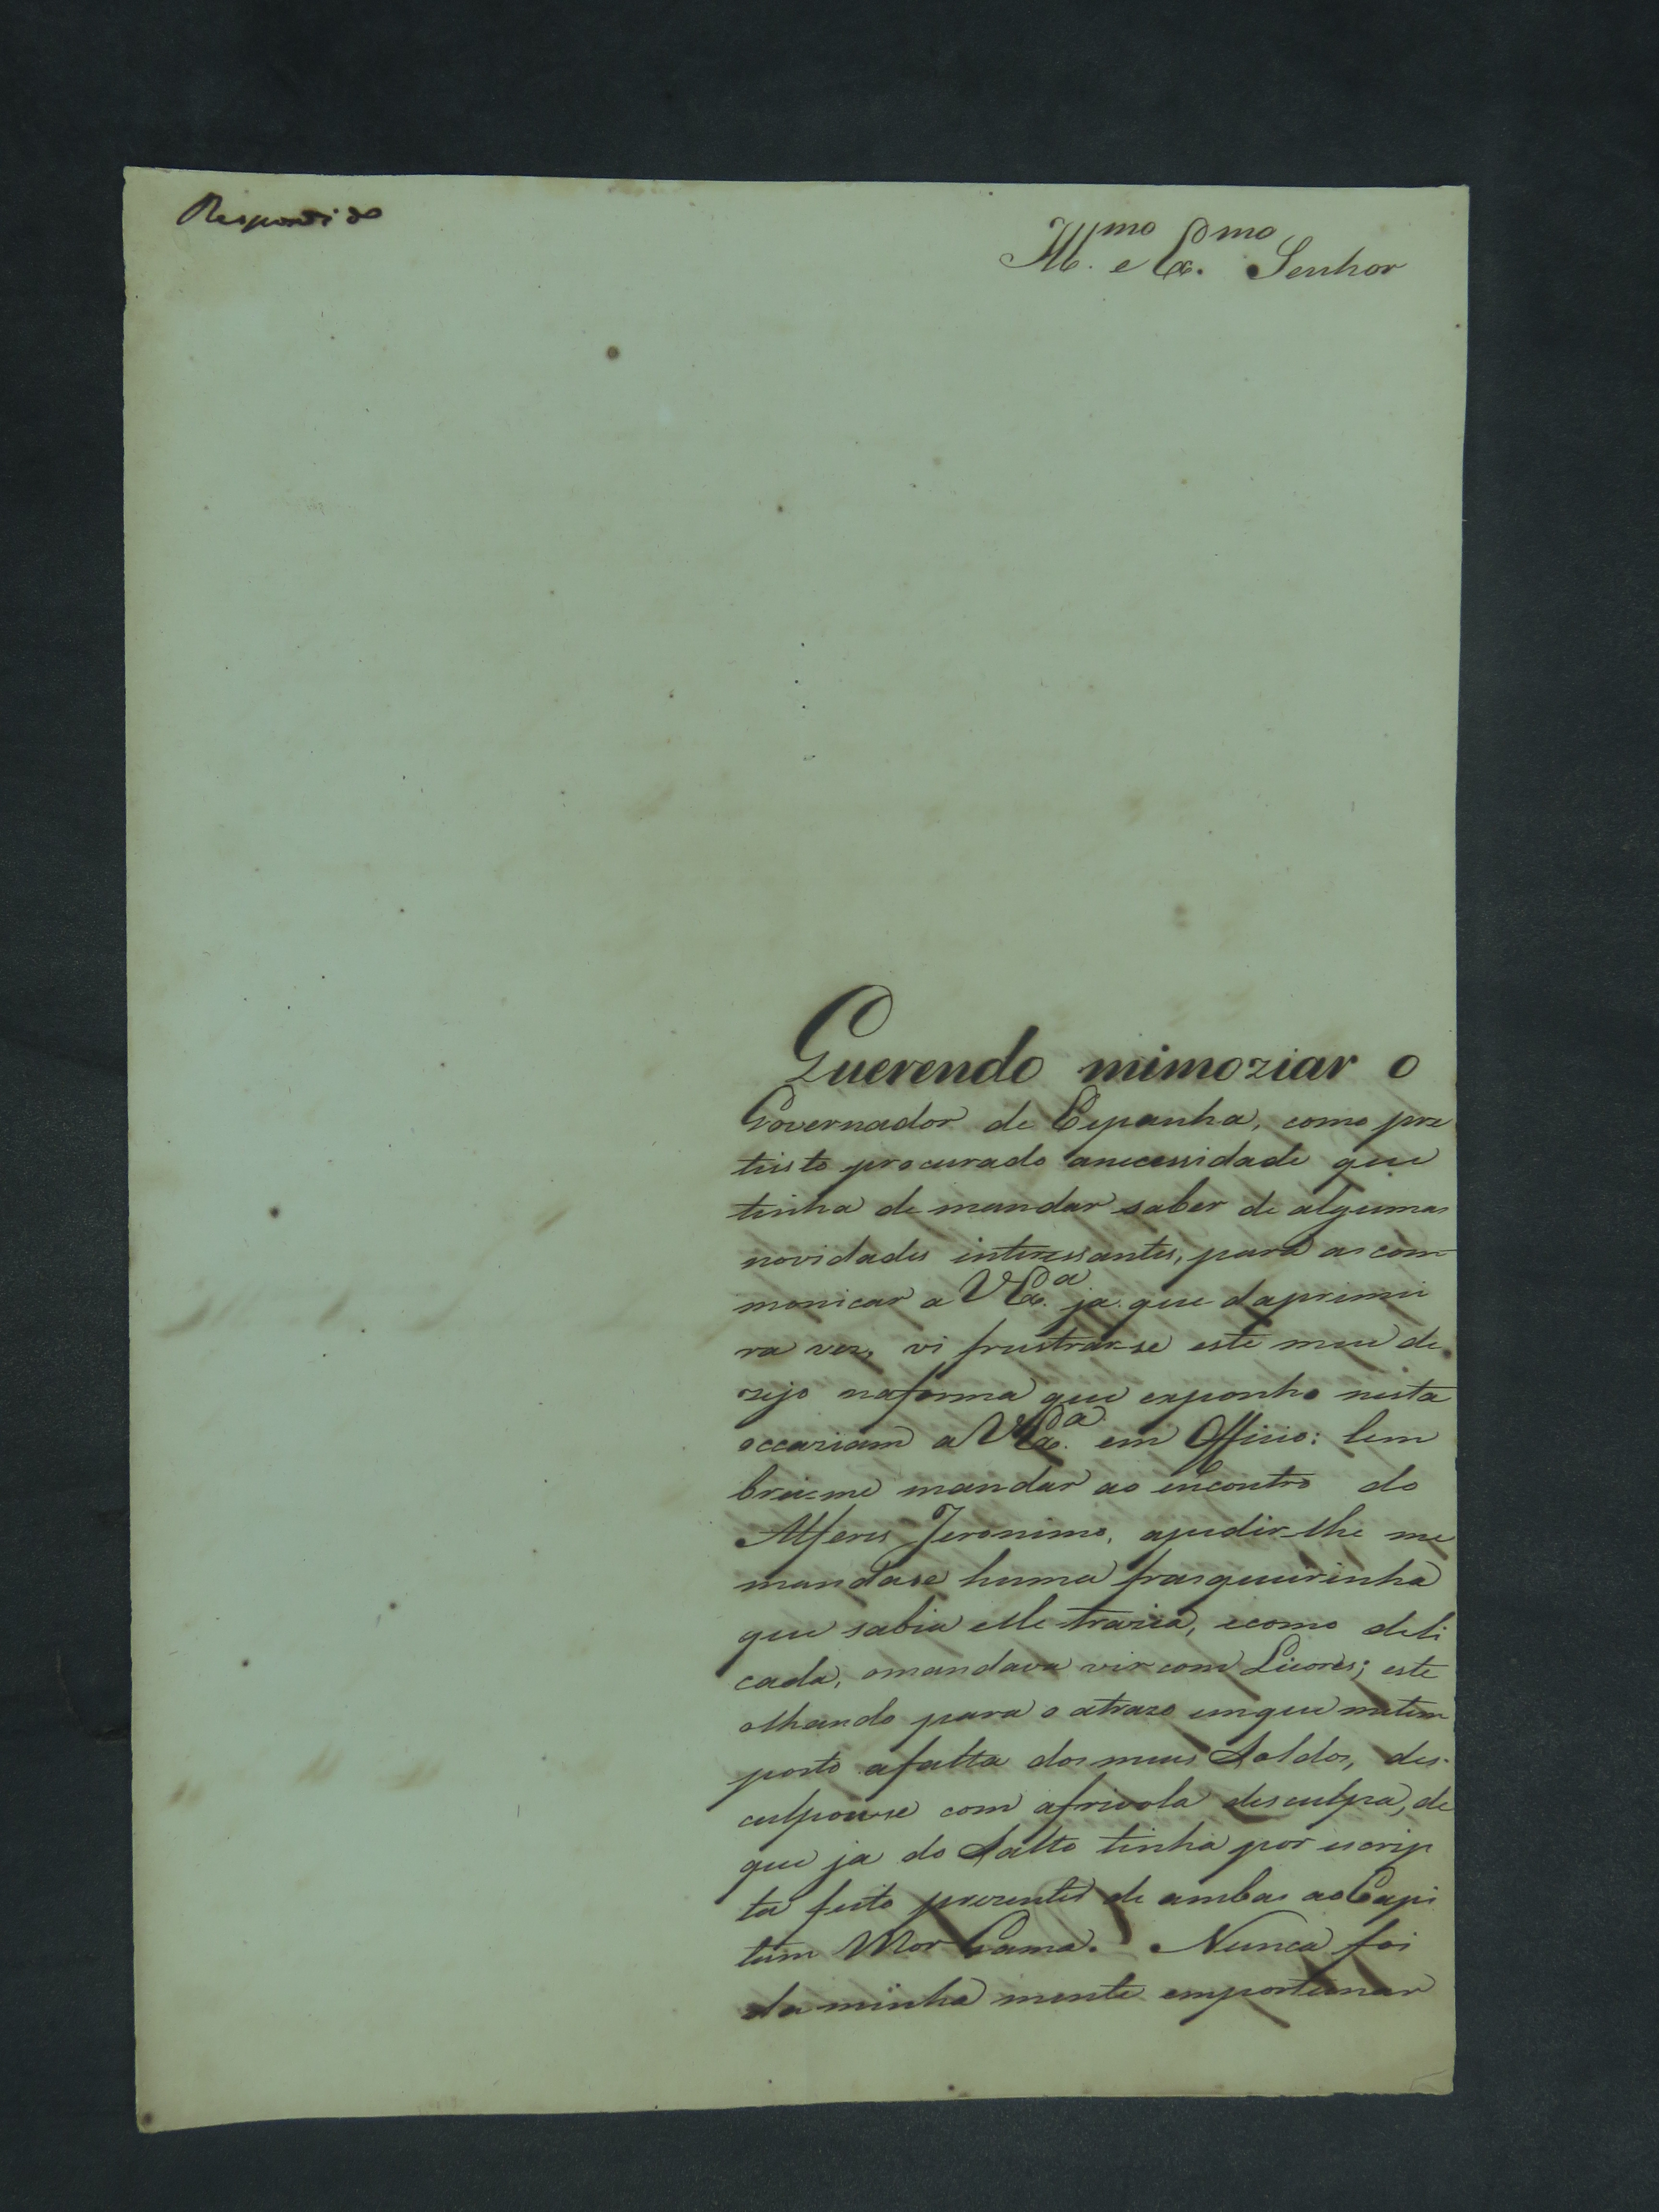 Respondido
Ill.mo e Ex.mo Senhor
Querendo mimoziar o
Governador de Espanha, como pre
teisto procurado anecessidade que
tinha de mandar saber de algumas
novidades interessantes, para as com-
monicar a VEx.a ja que daprimei
ra vez, vi frustrar-se este meu de
zejo naforma que exponho nesta
occaziam a VEx.a em Officio: lem
brei-me mandar ao encontro do
Alferes Jeronimo, apedir-lhe me
mandase huma frasqueirinha
que sabia elle trazia, ecomo deli
cada, omandava vir com Licores; este
olhando para o atrazo emque metem
posto afalta dos meus Soldos, des-
culpou-se com afrivola desculpa, de
que ja do Salto tinha por escrip
ta feito prezentes de ambas ao Capi
tam Mor Gama. Nunca foi
da minha mente emportunar